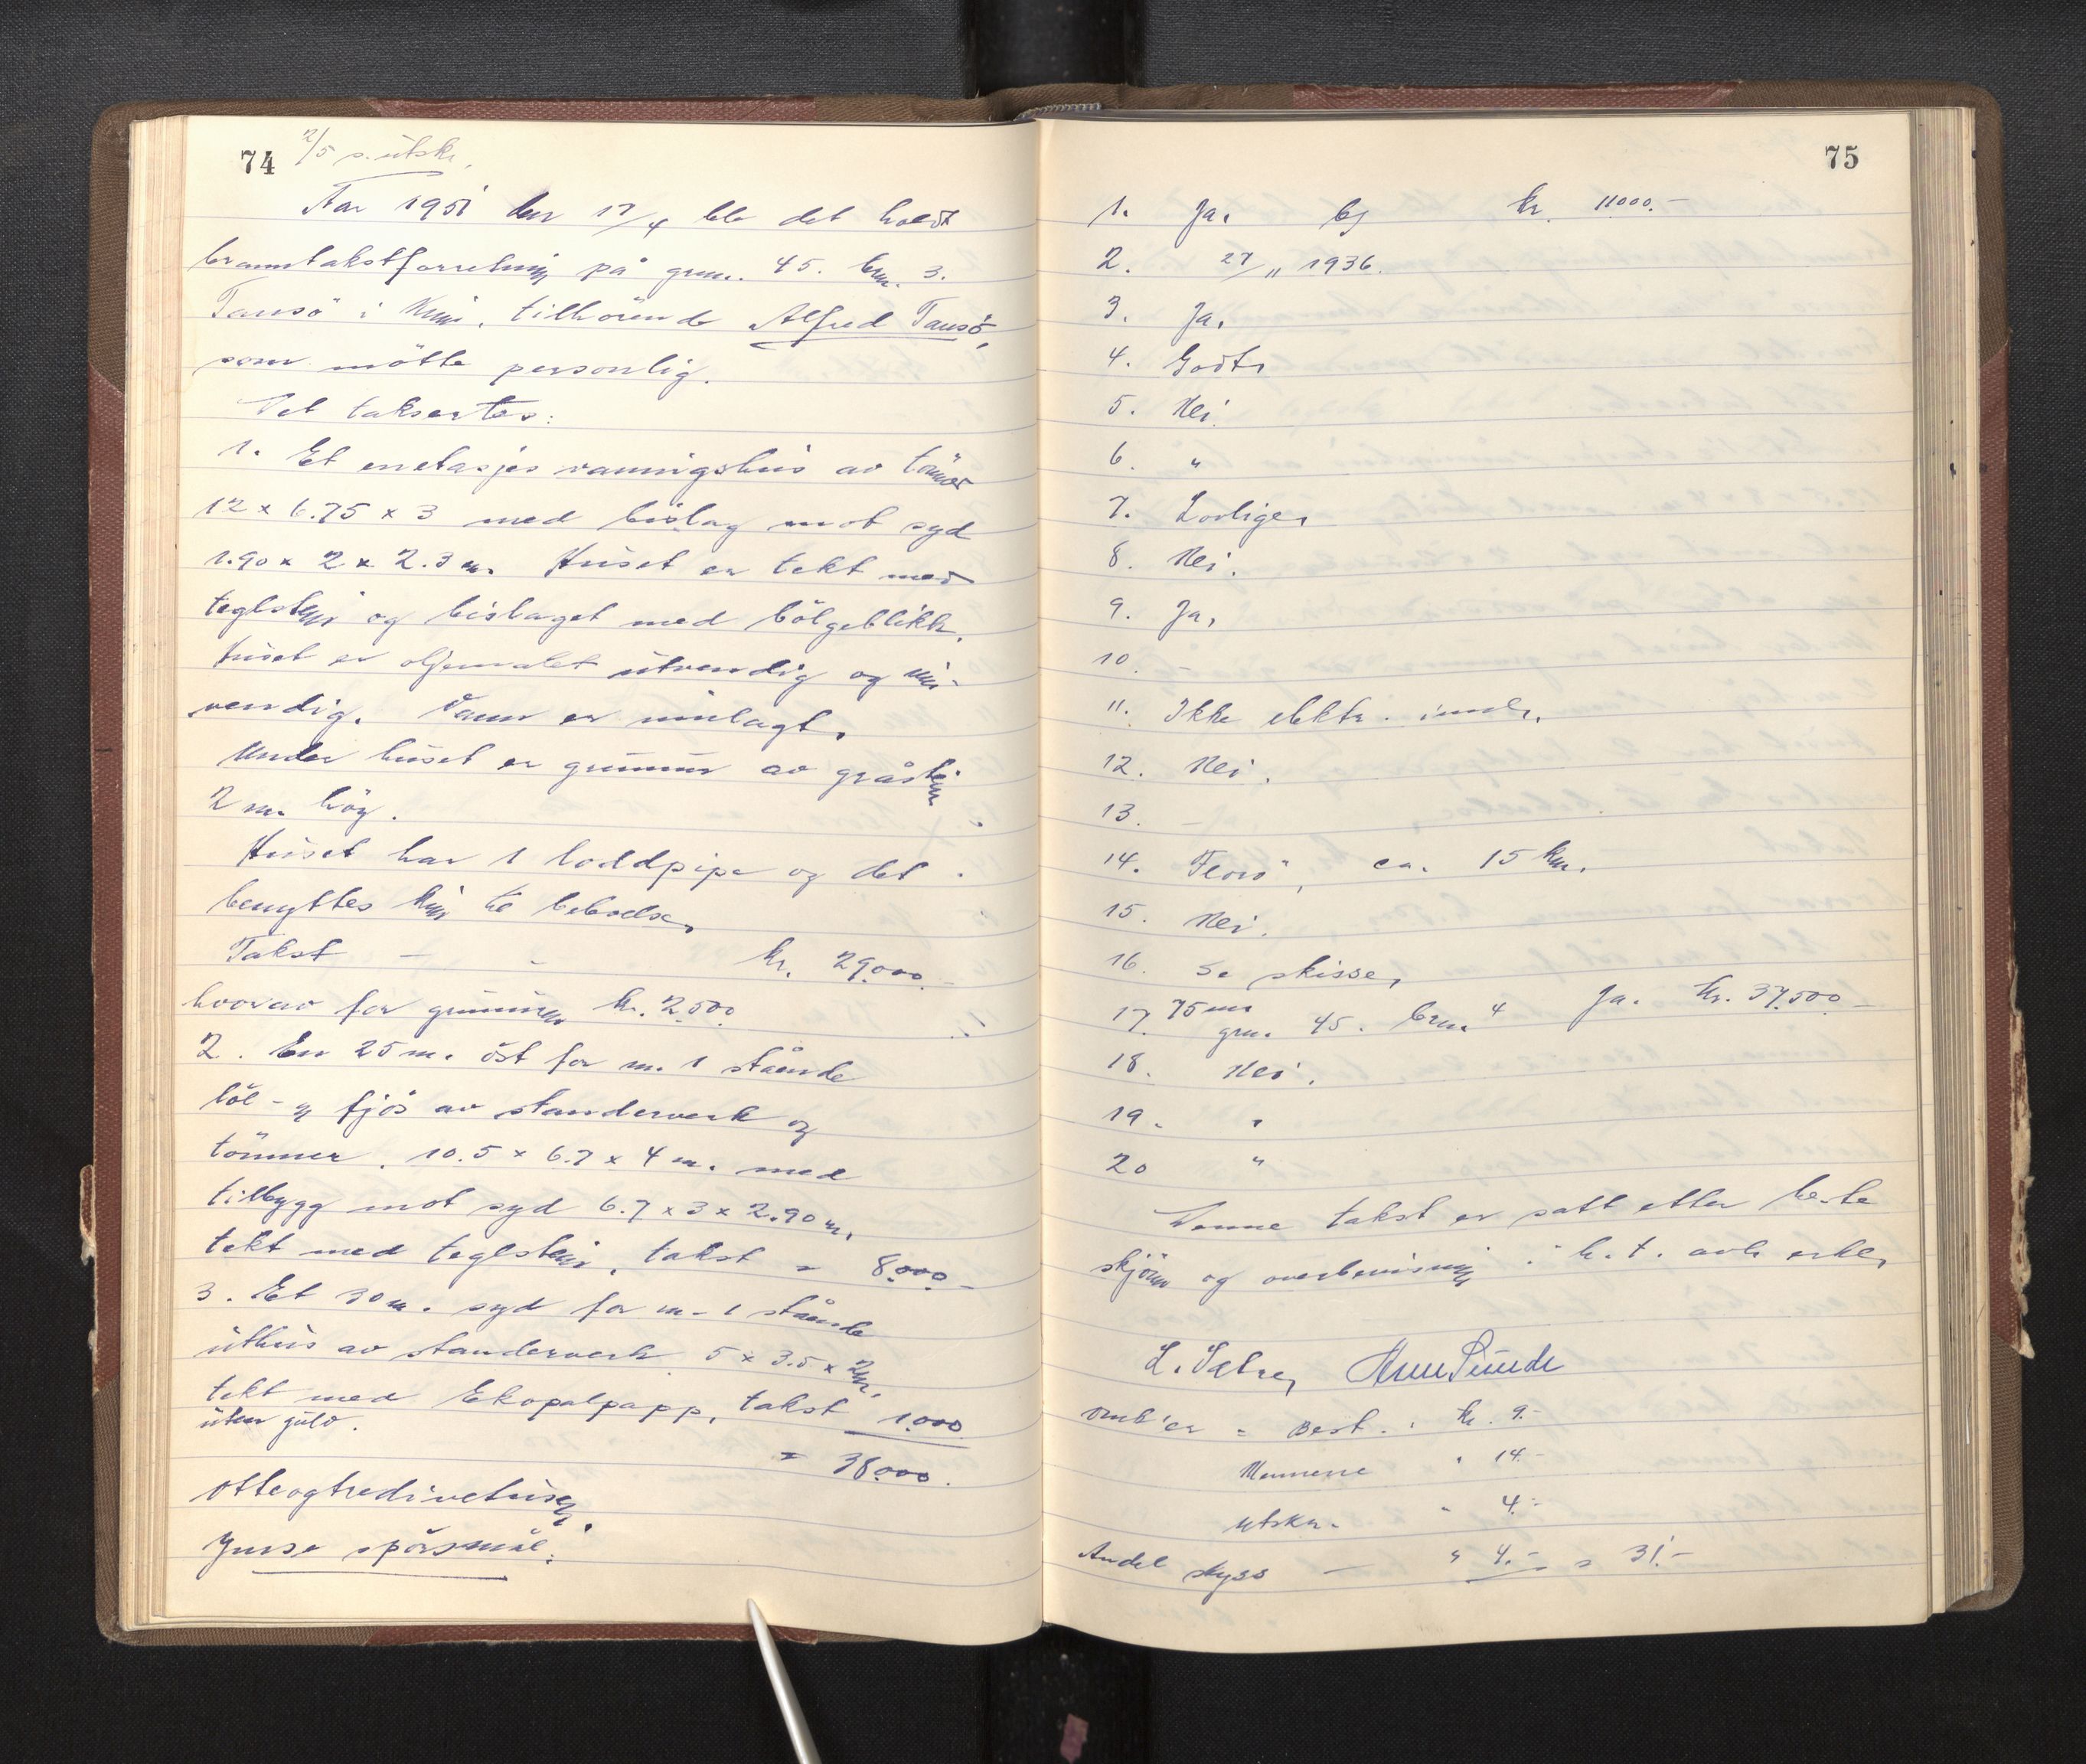 74
2/5 s. utskr.
Aar 1951 den 17/4 ble det holdt
branntakstforretning på grnr. 45. brnr. 3.
Tansö i Kinn, tilhörende Alfred Tansö,
som mötte personlig.
Det taksertes:
1. Et enetasjes vaaningshus av tömmer
12 x 6.75 x 3 med bislag mot syd
1.90 x 2 x 2.3 m. Huset er tekt med
teglstein og bislaget med bölgeblikk.
Huset er oljemalet utvendig og inn-
vendig. Vann er innlagt.
Under huset er grunnmur av gråstein
2 m. höy.
Huset har 1 loddpipe og det
benyttes kun til beboelse,
Takst - - kr. 29000.-
hvorav for grunnmur kr. 2500
2. En 25 m. öst for nr. 1 stående
löe- og fjös av standerverk og
tömmer. 10.5 x 6.7 x 4 m. med
tilbygg mot syd 6.7 x 3 x 2.90 m.
tekt med teglstein, takst = 8000 -
3. Et 30 m. syd for nr. 1 stående
uthus av standerverk 5 x 3.5 x 2 m.
tekt med Ekopalpapp, takst 1000
uten gulv.
= 38000.
otteogtredivetusen.
Junse spörsmål:
75
1. Ja. bg kr. 11000.-
2. 27/11 1936.
3. Ja.
4. Godt,
5. Nei
6. "
7. Lovlige,
8. Nei.
9. Ja,
10. -
11. Ikke elektr. innl.
12. Nei.
13. -
14. Florö, ca. 15 km.
15. Nei.
16. Se skisse,
17. 75 m grn. 45. brnr. 4 Ja. kr. 37,500 -
18. Nei.
19. "
20 "
Denne takst er satt etter beste
skjönn og overbevisning i h. t. avk erkl,
L. Sætre, Arne Sunde
Omk'er = Best. : kr. 9.-
Mennene " 14.-
Utskr. " 4.-
Andel skyss - " 4.- = 31.-